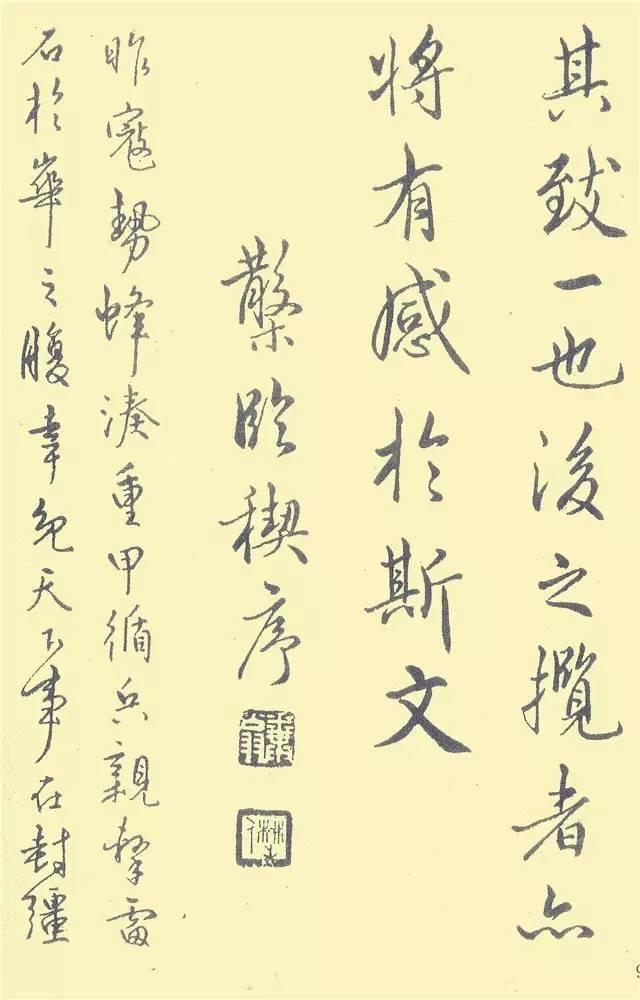 其致一也後之攬者亦
將有感於斯文
散木臨禊序
昨寇勢蜂湊重甲循兵親擊雷
石於華之腹幸免天下事在封疆